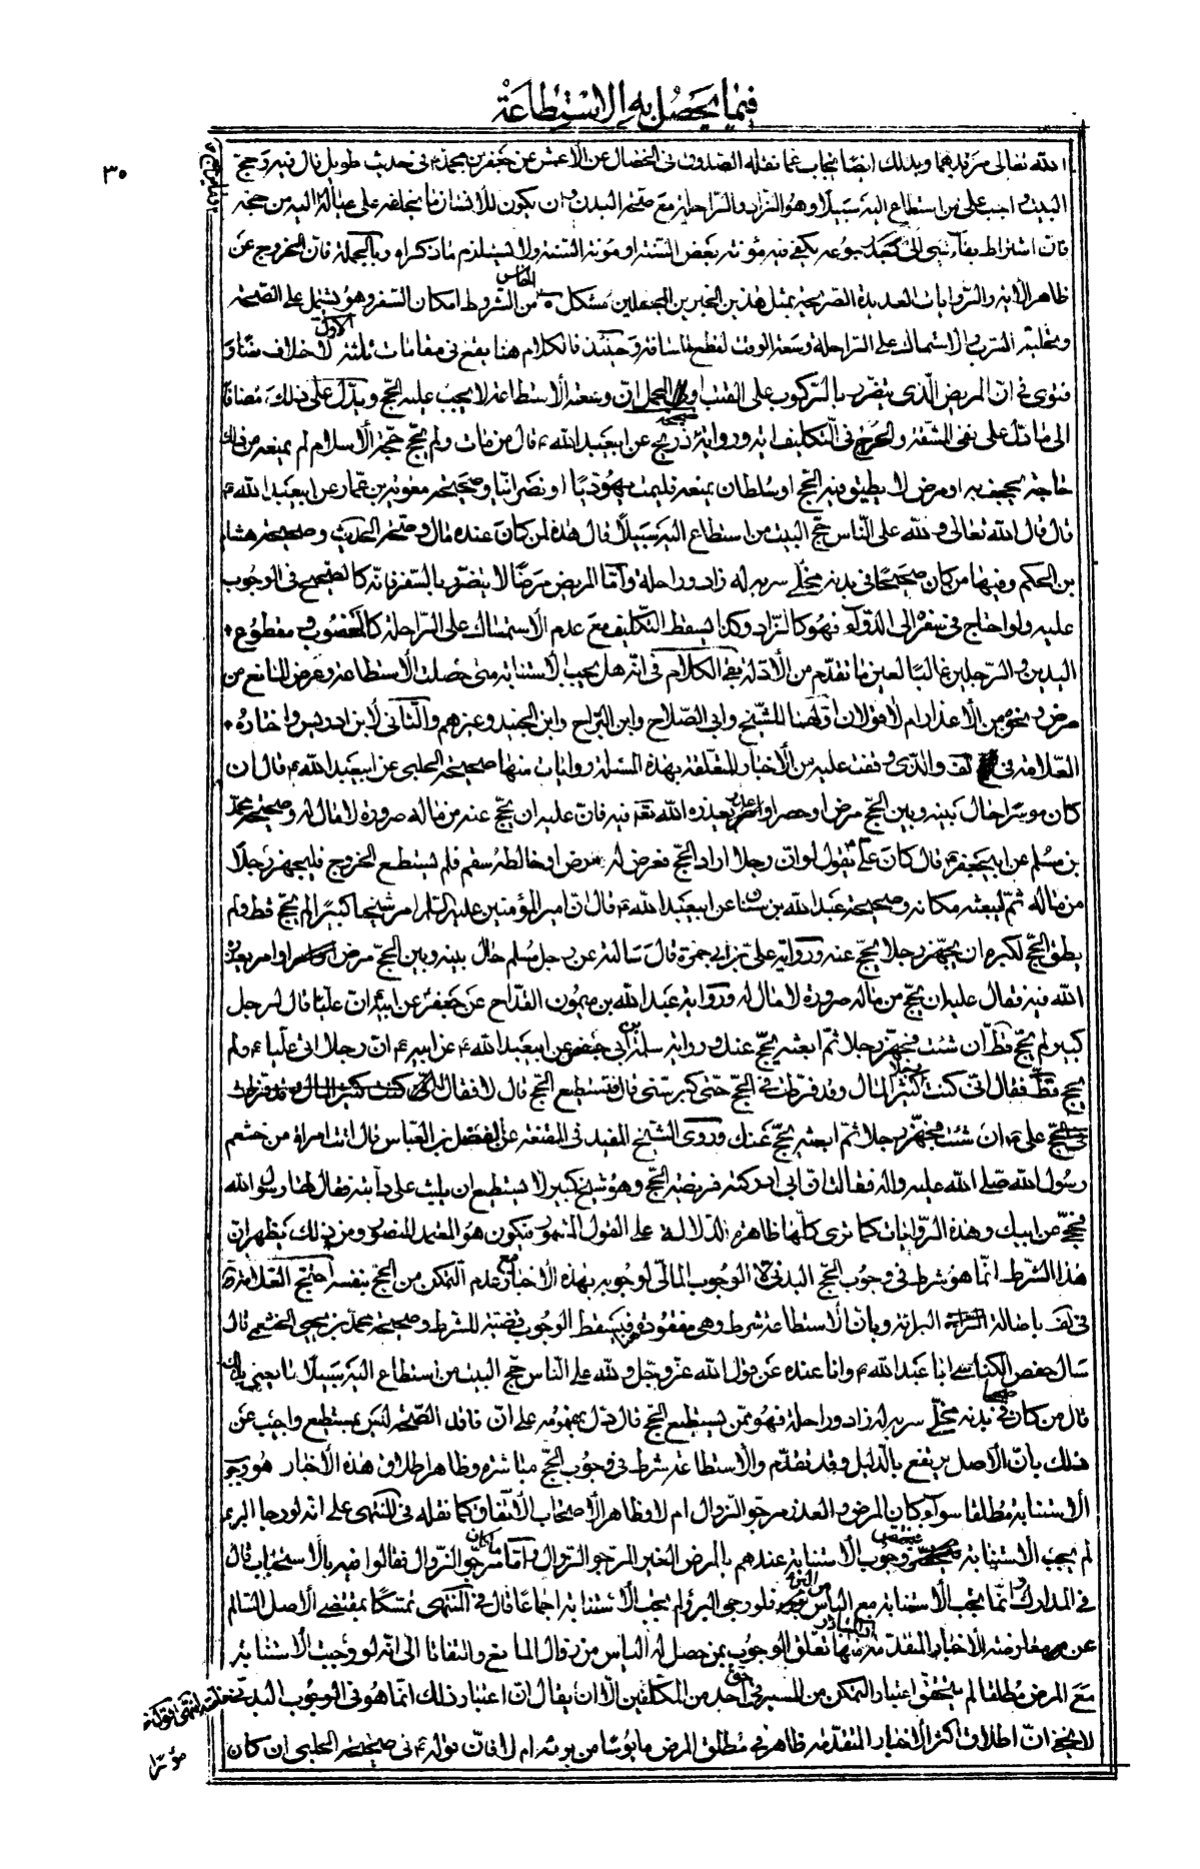 فيما يحصل به الاستطاعة
٣٠
الله تعالى مزيدهما وبذلك ايضا يجاب عما نقله الصدوق في الخصال عن الاعمش عن جعفر بن محمد ع في حديث طويل قال فيه وحج
البيت واجب على من استطاع اليه سبيلا وهو الزاد والراحلة مع صحة البدن وان يكون للانسان ما يخلفه على عياله اليه من حجه
فان اشتراط بقاء شيء الى بعد رجوعه يكفي فيه مؤنة بعض السنة او مؤنة السنة ولا يستلزم ما ذكراه وبالجملة فان الخروج عن
ظاهر الاية والروايات العديدة الصريحة بمثل هذين الخبرين المجملين مشكل الخامس من الشروط امكان السفر وهو يشتمل على الصحة
وتخلية السرب والاستمساك على الراحلة وسعة الوقت لقطع المسافة وحينئذ فالكلام هنا يقع في مقامات ثلثة الاول لا خلاف نصا و
فتوى في ان المريض الذي يتضرر بالركوب على القتب او المحمل ان وسعه الاستطاعة لا يجب عليه الحج ويدل على ذلك مضافا
الى ما دل على نفي المشقة والحرج في التكليف اية ورواية صحيحة ذريح عن ابيعبد الله ع قال من مات ولم يحج حجة الاسلام لم يمنعه من ذلك
حاجة تجحف به او مرض لا يطيق فيه الحج او سلطان يمنعه فليمت يهوديا او نصرانيا وصحيحة معوية بن عمار عن ابيعبد الله ع
قال قال الله تعالى ولله على الناس حج البيت من استطاع اليه سبيلا قال هذه لمن كان عنده مال وصحة الحديث وصحيحة هشام
بن الحكم وفيها من كان صحيحا في بدنه مخلى سربه له زاد وراحلة واما المريض مرضا لا يتضرر بالسفر فانه كالصحيح في الوجوب
عليه ولو احتاج في سفره الى الدواء فهو كالزاد وكذا يسقط التكليف مع عدم الاستمساك على الراحلة كالمغصوب ومقطوع
اليدين والرجلين غالبا لعين ما تقدم من الادلة بقي الكلام في انه هل يجب الاستنابة متى حصلت الاستطاعة وعرض المانع من
مرض ونحوه من الاعذار ام لا قولان اولهما للشيخ وابي الصلاح وابن البراج وابن الجنيد وغيرهم والثاني لابن ادريس واختاره
العلامة في لف والذي وقفت عليه من الاخبار المتعلقة بهذه المسئلة روايات منها صحيحة الحلبي عن ابيعبد الله ع قال ان
كان موسرا حال بينه وبين الحج مرض او حصر او امر يعذره الله تعه فيه فان عليه ان يحج عنه من ماله صرورة لا مال له وصحيحة محمد
بن مسلم عن ابيجعفر ع قال كان علي ع يقول لو ان رجلا اراد الحج فعرض له مرض او خالطه سقم فلم يستطع الخروج فليجهز رجلا
من ماله ثم ليبعثه مكانه وصحيحة عبد الله بن سنان عن ابيعبد الله ع قال ان امير المؤمنين عليه السلام امر شيخا كبيرا لم يحج قط ولم
يطق الحج لكبره ان يجهز رجلا يحج عنه ورواية علي بن ابي حمزة قال سالته عن رجل مسلم حال بينه وبين الحج مرض او امر يعذره
الله فيه فقال عليه ان يحج من ماله صرورة لا مال له ورواية عبد الله بن ميمون القداح عن جعفر عن ابيه ع ان عليا قال لرجل
كبير لم يحج قط ان شئت فجهز رجلا ثم ابعثه يحج عنك ورواية سلمة ابي حفص عن ابيعبد الله ع عن ابيه ع ان رجلا اتى عليا ع ولم
يحج قط فقال اني كنت رجلا كثير المال وقد فرطت في الحج حتى كبر سني قال فتستطيع الحج قال لا فقال
علي ع ان شئت فجهز رجلا ثم ابعثه يحج عنك وروى الشيخ المفيد في المقنعة عن الفضل بن العباس قال اتت امراة من خثعم
رسول الله صلى الله عليه واله فقالت ان ابي ادركته فريضة الحج وهو شيخ كبير لا يستطيع ان يلبث على دابته فقال لها رسول الله
فحجي عن ابيك وهذه الروايات كما ترى كلها ظاهرة الدلالة على القول المشهور فيكون هو المعتمد المنصور ومن ذلك يظهر ان
هذا الشرط انما هو شرط في وجوب الحج البدني لا الوجوب المالي لوجوبه بهذه الاخبار مع عدم التمكن من الحج بنفسه احتج العلامة
في لف باصالة البرائة وبان الاستطاعة شرط وهي مفقودة فيسقط الوجوب قضية للشرط وصحيحة محمد بن يحيى الخثعمي قال
سال حفص الكناسي ابا عبد الله ع وانا عنده عن قول الله عز وجل ولله على الناس حج البيت من استطاع اليه سبيلا ما يعني بذلك
قال من كان صحيحا في بدنه مخلى سربه له زاد وراحلة فهو ممن يستطيع الحج قال دل بمفهومه على ان فاقد الصحة ليس بمستطيع واجيب عن
ذلك بان الاصل يرتفع بالدليل وقد تقدم والاستطاعة شرط في وجوب الحج مباشرة وظاهر اطلاق هذه الاخبار هو وجوب
الاستنابة مطلقا سواء كان المرض والعذر مرجو الزوال ام لا وظاهر الاصحاب الاتفاق كما نقله في المنتهى على انه لو رجا البرء
لم يجب الاستنابة فيختص وجوب الاستنابة عندهم بالمرض الغير المرجو الزوال واما ما كان مرجو الزوال فقالوا فيه بالاستحباب قال
في المدارك وانما يجب الاستنابة مع الياس من البرء فلو رجى البرؤ لم يجب الاستنابة اجماعا قال في المنتهى تمسكا بمقتضى الاصل السالم
عن معارضة الاخبار المتقدمة اذ المتبادر منها تعلق الوجوب بمن حصل له الياس من زوال المانع والتفاتا الى انه لو وجبت الاستنابة
مع المرض مطلقا لم يتحقق اعتبار التمكن من المسير في حق احد من المكلفين الا ان يقال ان اعتبار ذلك انما هو في الوجوب البدني
لا يخفى ان اطلاق اكثر الاخبار المتقدمة ظاهر في مطلق المرض مايوسا من برئه ام لا فان قوله ع في صحيحة الحلبي ان كان
موسرا